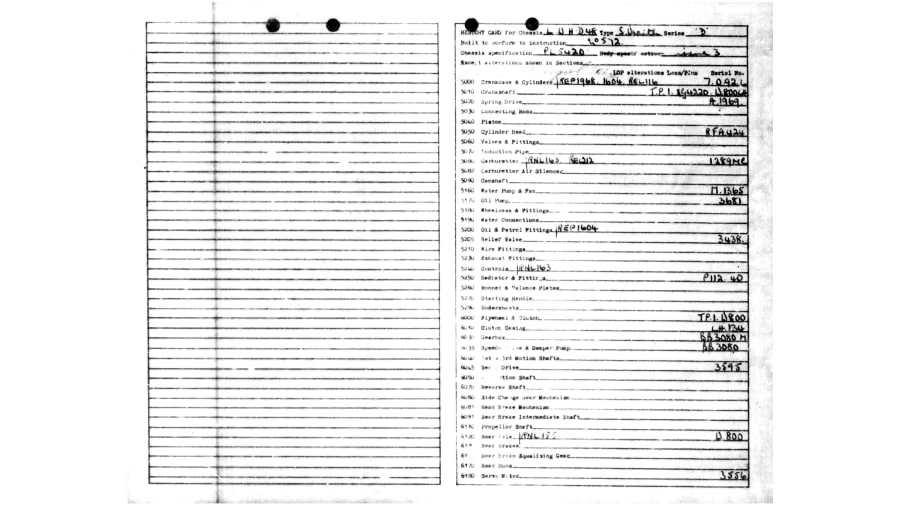 HISTORY CARD for Chassis L W H D 48 Type S. Series "D"
Built to conform to instruction
Chassis specification PL 5420 3
shown in Sections
LOP alterations Loss/Plus Serial No.
5000 Crankcase & Cylinders REP1968. 1604. REL116 7.0.92.1
5010 Crankshaft T.P.1.
5020 Spring Drive A.1969.
5030 Connecting Rods
5040 Piston
5050 Cylinder Head RFA.424
Valves & Fittings
5070 Induction Pipe
Carburetter RNL163. REL212 1289ME
Carburetter Air Silencer
5090 Camshaft
5160 Water Pump & Fan M.1365
5170 Oil Pump 3681
Wheelcase & Fittings
5190 Water Connections
5200 Oil & Petrol Fittings REP1604
5205 Relief Valve 3438.
5210 Wire Fittings
5230 Exhaust Fittings
Controls RNL163
5250 Radiator & Fittings P112. 40
5260 Bonnet & Valance Plates
Starting Handle
5290 Undersheets
6000 Flywheel & Clutch T.P.1. W800
6010 Clutch Casing LH.134
6030 Gearbox BB 3080 M
6035 & Damper Pump BB 3080
1st & 3rd Motion Shafts
6045 Drive 3595
6050 Motion Shaft
6070 Reverse Shaft
6080 Side Change Gear Mechanism
6081 Hand Brake Mechanism
6091 Rear Brake Intermediate Shaft
6110 Propeller Shaft
6120 Rear Axle W.800
Rear Brakes
Rear Brake Equalising Gear
6170 Rear Hubs
6180 Servo Motor 3556